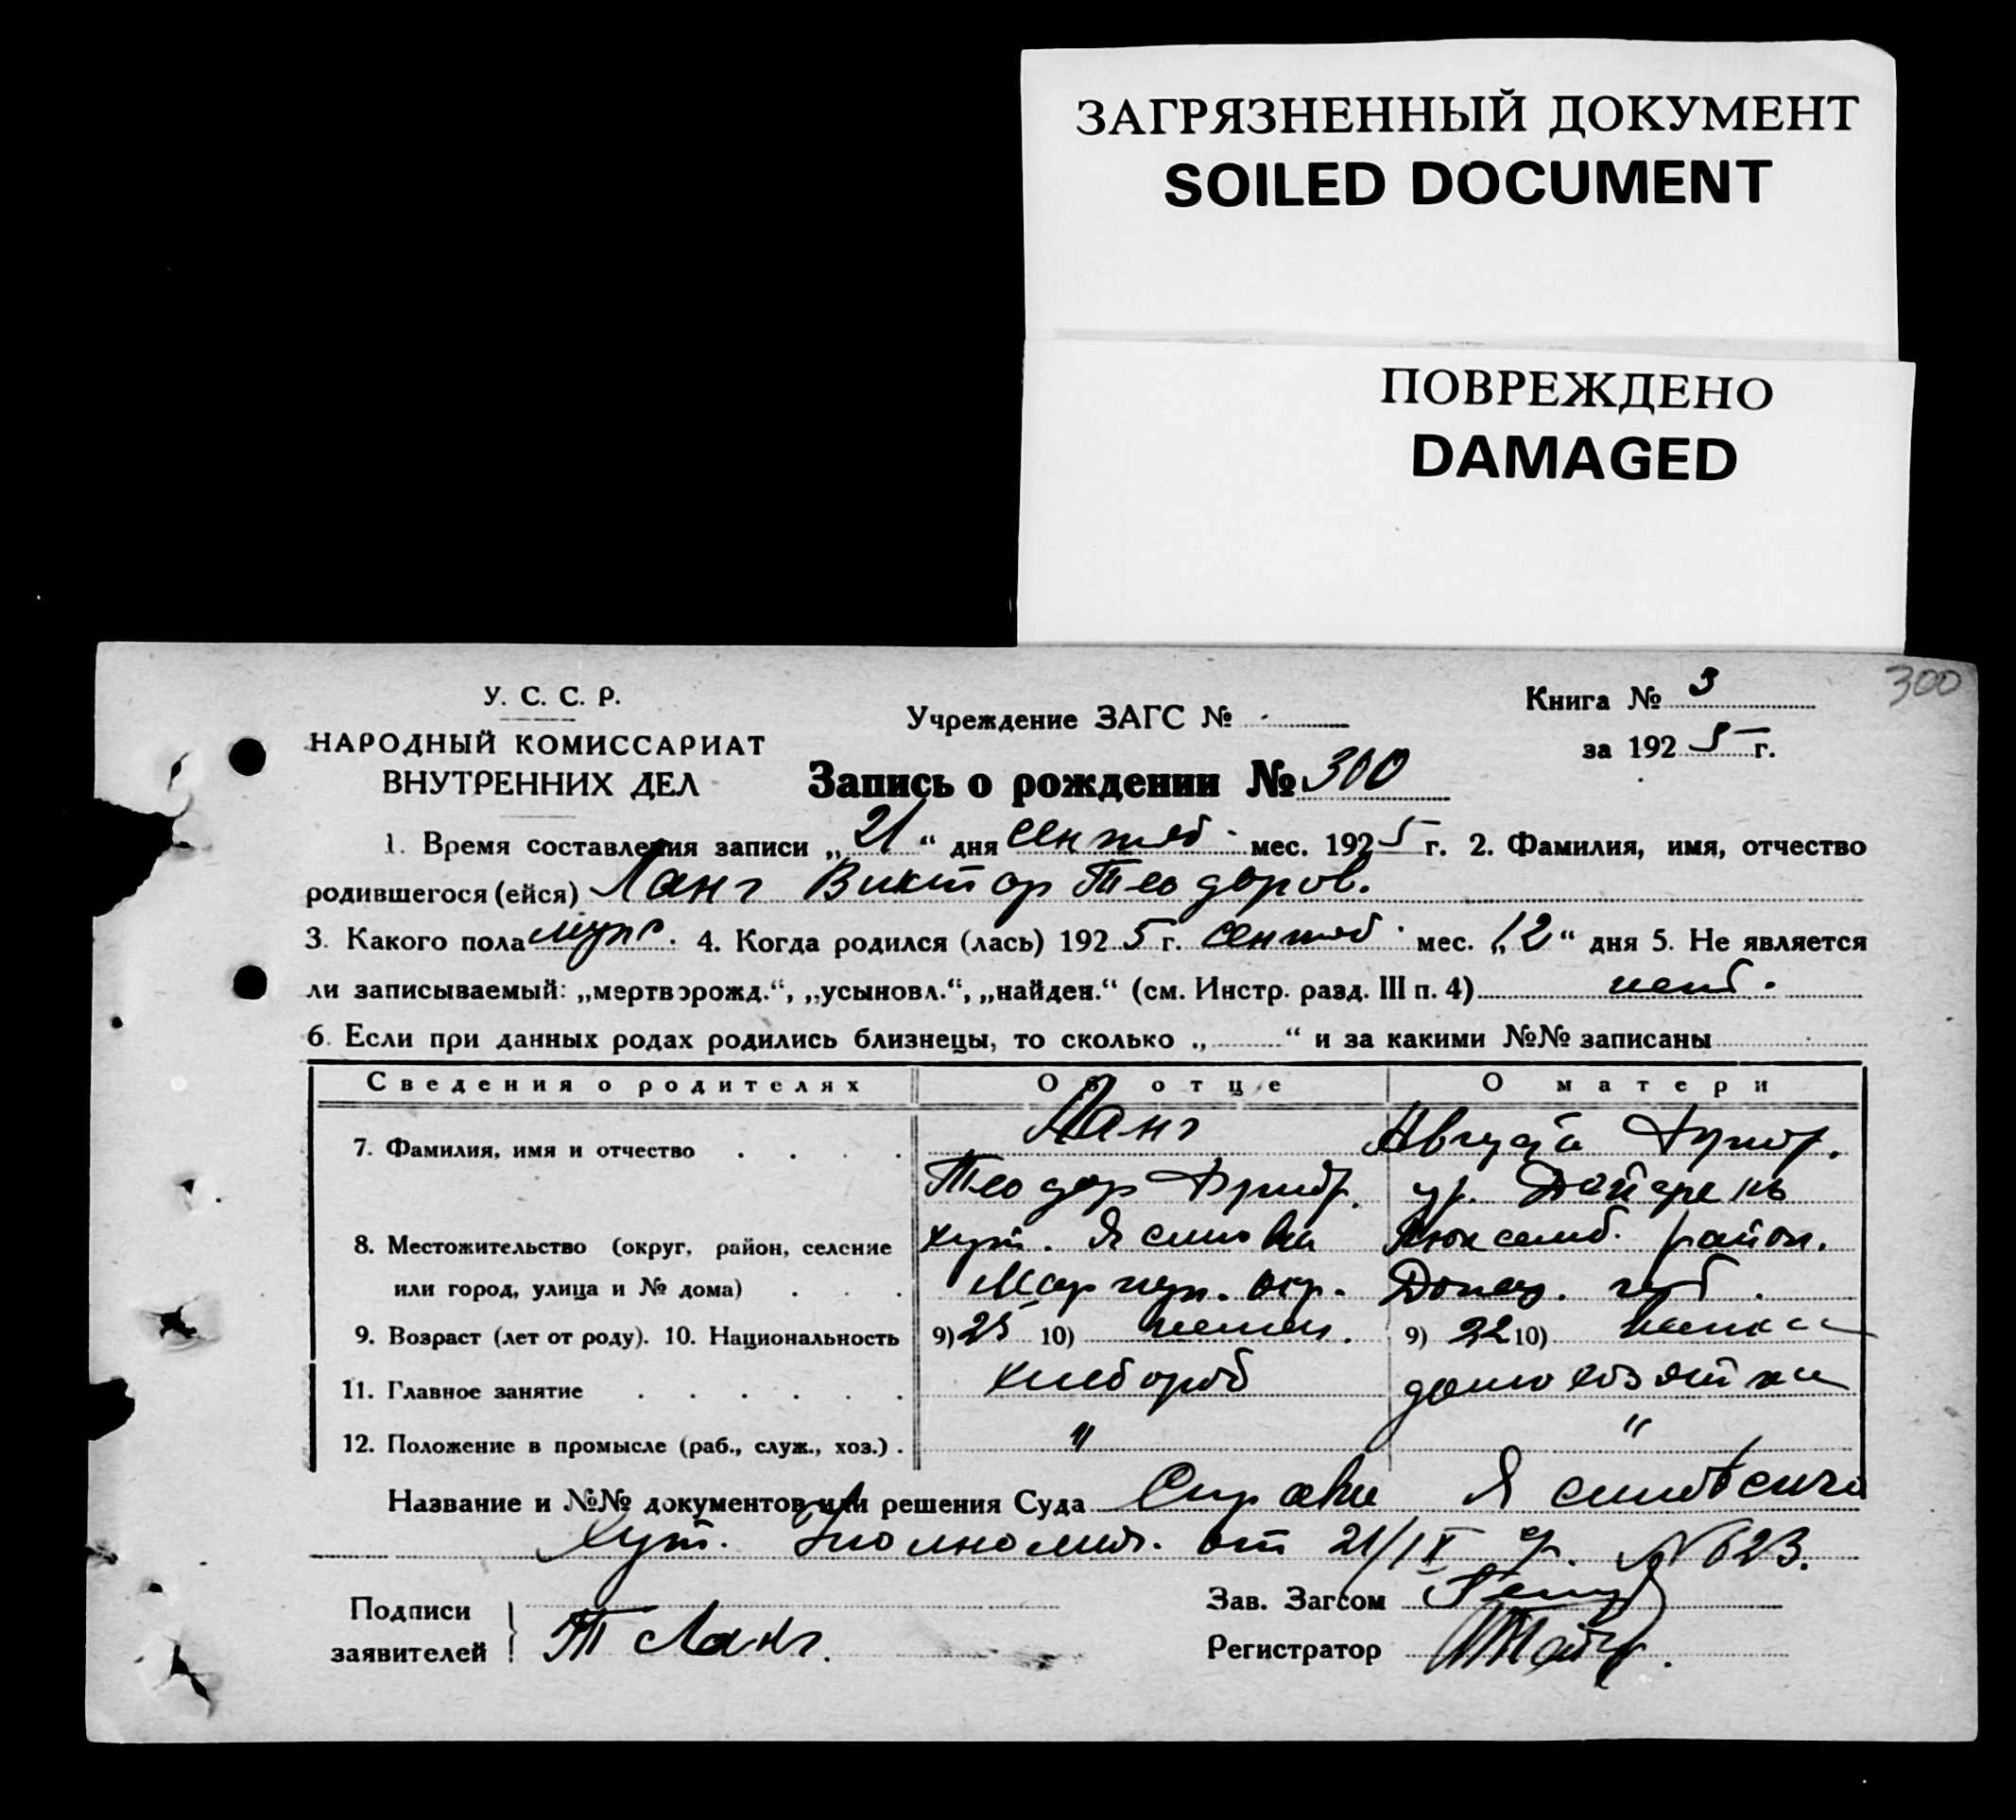 ЗАГРЯЗНЕННЫЙ ДОКУМЕНТ
SOILED DOCUMENT
ПОВРЕЖДЕНО
DAMAGED
300
У. С. С. Р.
НАРОДНЫЙ КОМИССАРИАТ
ВНУТРЕННИХ ДЕЛ
Учреждение ЗАГС №
Книга № 3
за 1925 г.
Запись о рождении № 300
1. Время составления записи „21“ дня сентяб. мес. 1925 г. 2. Фамилия, имя, отчество
родившегося (ейся) Ланг Виктор Теодоров.
3. Какого пола муж. 4. Когда родился (лась) 1925 г. сентяб. мес. „12“ дня 5. Не является
ли записываемый: „мертворожд.“, „усыновл.“, „найден.“ (см. Инстр. разд. III п. 4)
6. Если при данных родах родились близнецы, то сколько „ “ и за какими №№ записаны
Сведения о родителях Об отце О матери
7. Фамилия, имя и отчество Ланг
Теодор Фридр. ур.
8. Местожительство (округ, район, селение хут. Ясиновка район.
или город, улица и № дома) Мариуп. окр. Донец. губ.
9. Возраст (лет от роду). 10. Национальность 9) 25 10) немец. 9) 22 10) немка
11. Главное занятие хлебороб домохозяйка
12. Положение в промысле (раб., служ., хоз.) " "
Название и №№ документов или решения Суда Справка Ясиновского
хут. Уполномоч. от 21/IX № 623.
Подписи
заявителей Т Ланг.
Зав. Загсом
Регистратор